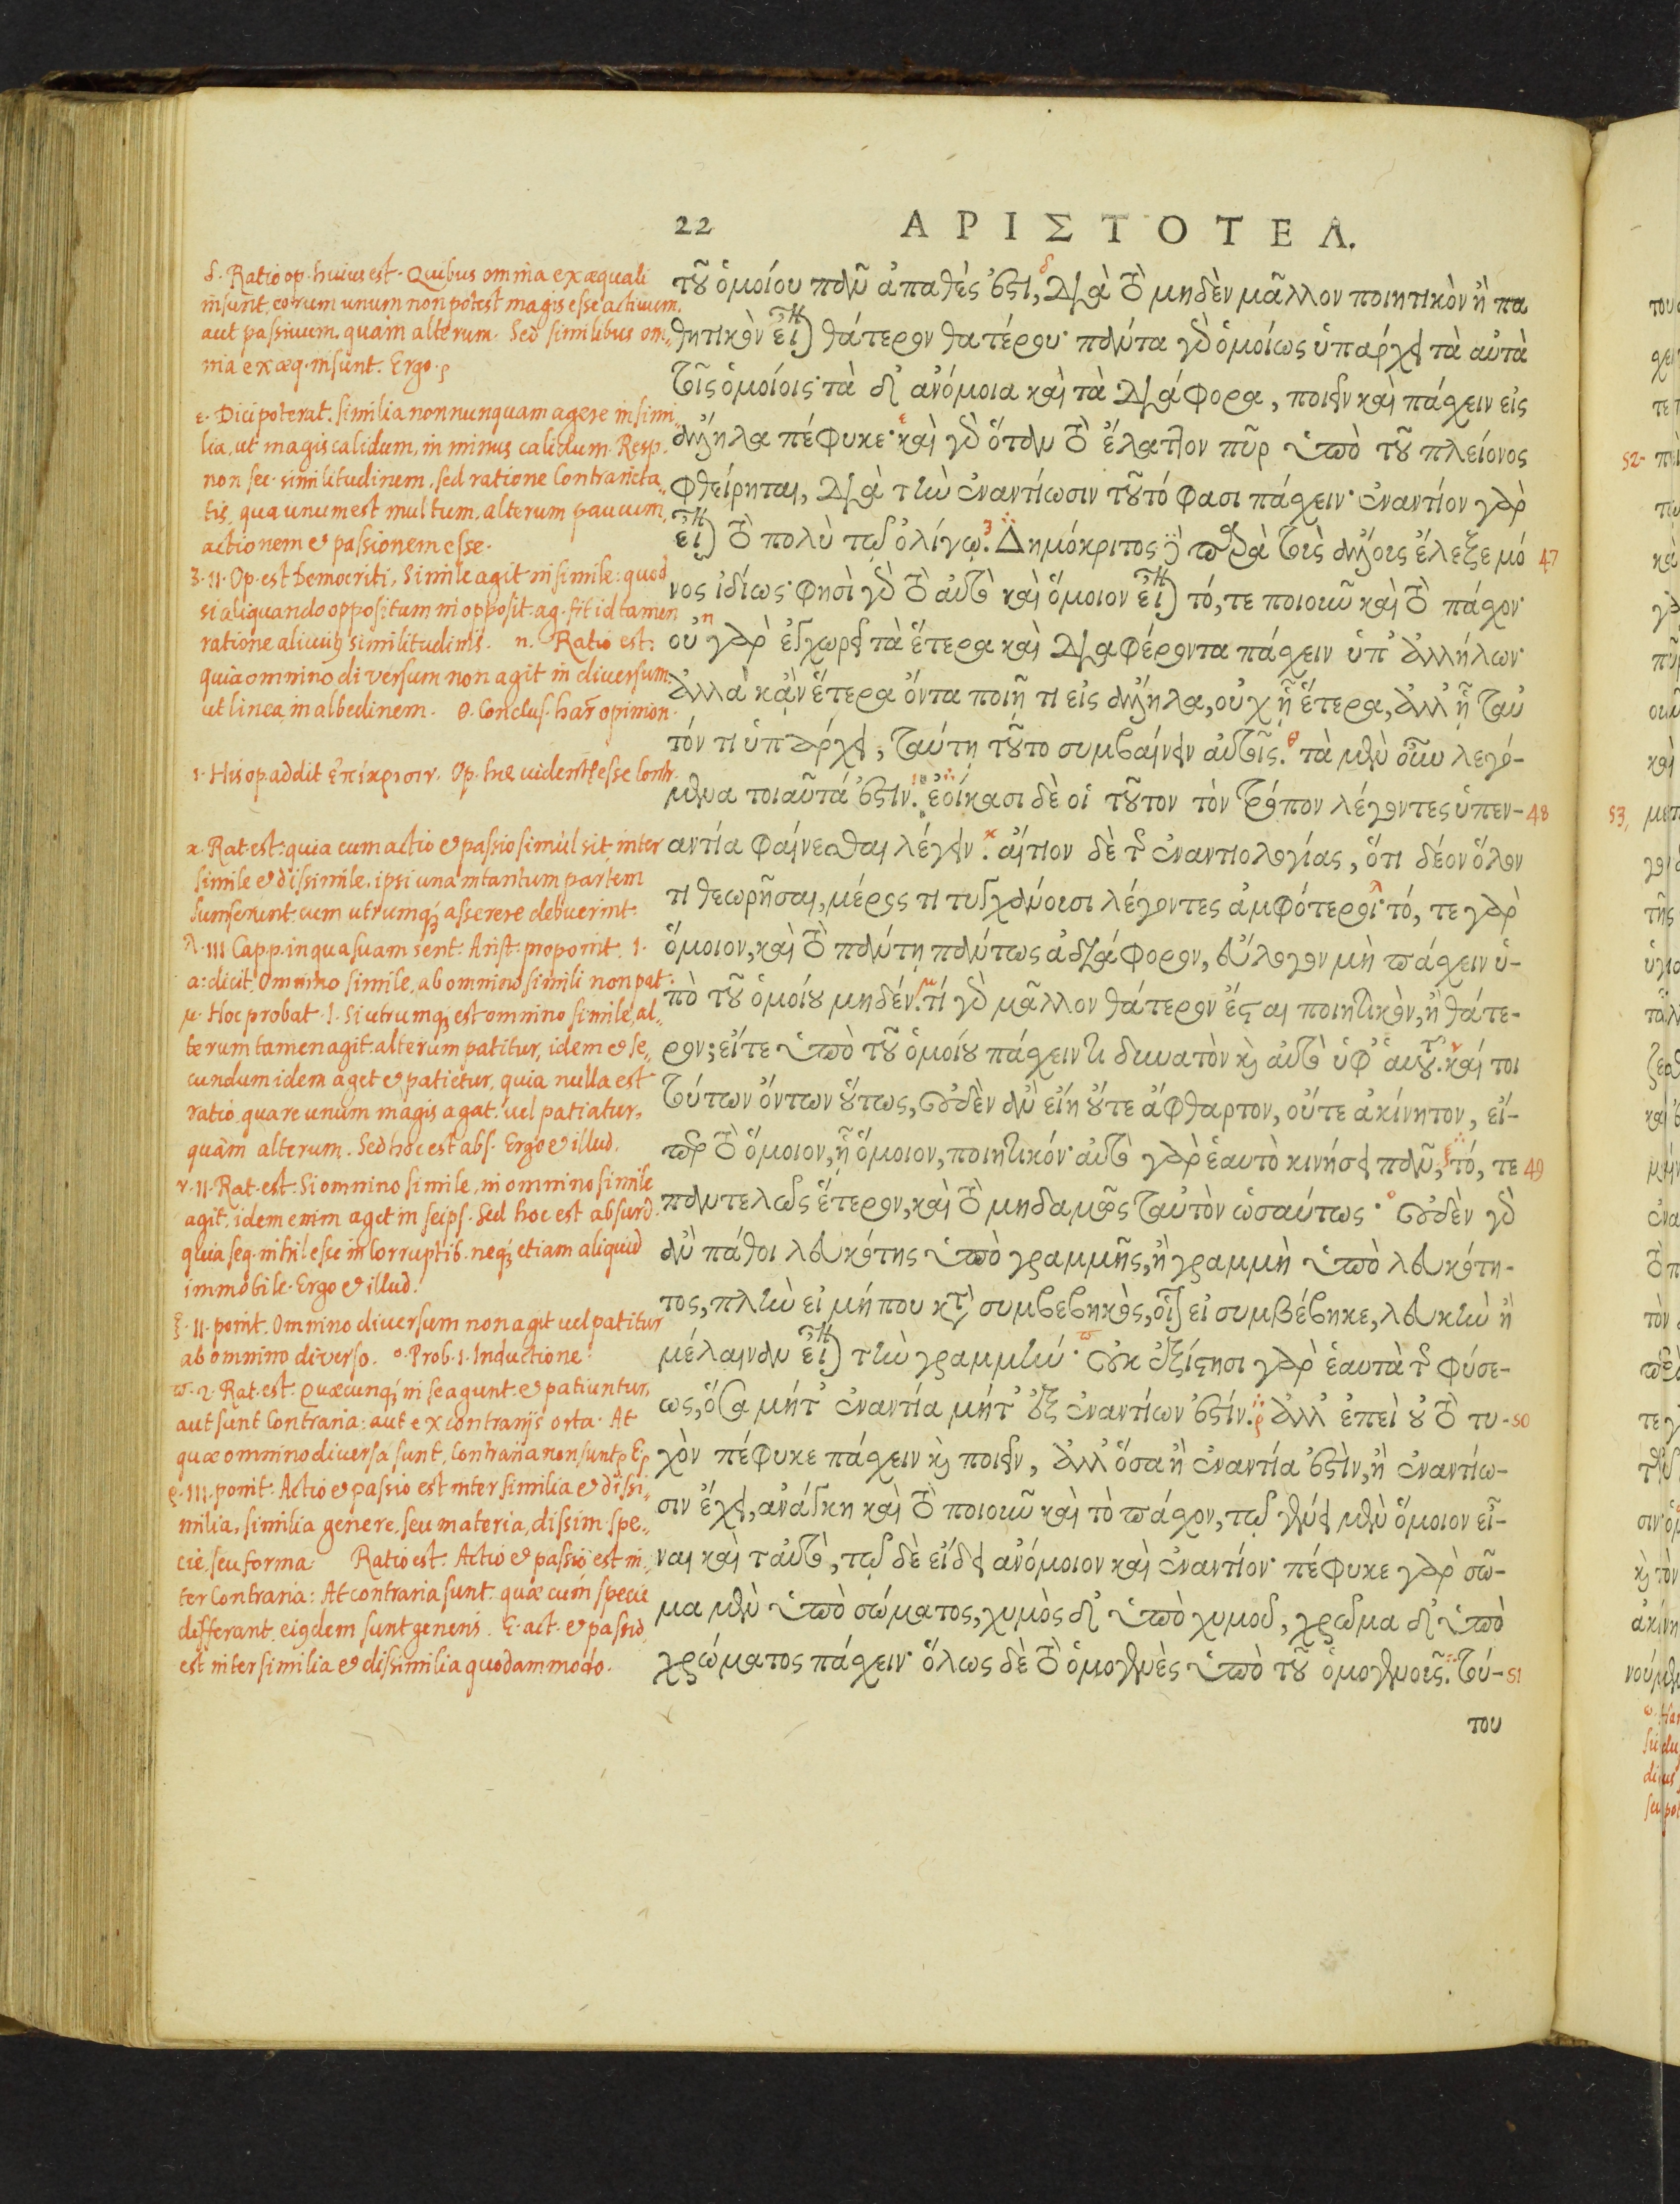 22 ΑΡΙΣΤΟΤΕΛ.
δ. Ratio op. huius est. Quibus omnia ex æquali
insunt, eorum unum non potest magis esse activum,
aut passivum, quam alterum. Sed similibus om„
nia ex æq. insunt. Ergo.
ε. Dici poterat. Similia nonnunquam agere in simi„
lia, ut magis calidum, in minus calidum. Resp.
non sec. similitudinem, sed ratione contrarieta„
tis, qua unum est multum, alterum paucum,
actionem et passionem esse.
3. II. Op. est Democriti, Simile agit in simile: quod
si aliquando oppositum in opposit. ag. fit id tamen
ratione alicuius similitudinis. n. Ratio est:
quia omnino diversum non agit in diversum:
ut linea in albedinem. θ. Conclus. har opinion.
ι. His op. addit ἐπίκρισιν. Op. hæ videntur esse contr.
κ. Rat. est: quia cum actio et passio simul sit inter
simile et dissimile, ipsi unam tantum partem
sumserunt, cum utrumque asserere debuerint.
λ. III Capp. in qua suam sent. Arist. proponit. I.
a: dicit. Omnino simile, ab omnino simili non pat.
μ. Hoc probat. I. Si utrumque est omnino simile, al„
terum tamen agit: alterum patitur, idem et se„
cundum idem aget et patietur, quia nulla est
ratio, quare unum magis agat. vel patiatur,
quàm alterum. Sed hoc est abs. Ergo et illud.
ν. II. Rat. est: Si omnino simile, in omnino simile
agit, idem enim aget in seips. Sed hoc est absurd.
quia seq. nihil esse incorruptib. neque etiam aliquid
immobile. Ergo et illud.
ξ. II. ponit. Omnino diversum non agit vel patitur
ab omnino diverso. ο. Prob. I. Inductione.
π. 2. Rat. est. Quæcunque in se agunt et patiuntur,
aut sunt contraria: aut ex contrarijs orta. At
quæ omnino diversa sunt, contraria non sunt
ρ. III. ponit. Actio et passio est inter similia et dissi„
milia, similia genere, seu materia, dissim. spe„
cie, seu forma. Ratio est: Actio et passio est in
ter contraria: At contraria sunt quæ cum specie
differant, eiusdem sunt generis. E. act. et passio
est inter similia et dissimilia quodammodo.
τοῦ ὁμοίου πᾶν ἀπαθές ἐστι, διὰ τὸ μηδὲν μᾶλλον ποιητικὸν ἢ πα
θητικὸν εἶναι θάτερον θατέρου· πάντα γὰρ ὁμοίως ὑπάρχει τὰ αὐτὰ
τοῖς ὁμοίοις· τὰ δ' ἀνόμοια καὶ τὰ διάφορα, ποιεῖν καὶ πάσχειν εἰς
ἄλληλα πέφυκε· καὶ γὰρ ὅταν τὸ ἔλαττον πῦρ ὑπὸ τοῦ πλείονος
φθείρηται, διὰ τὴν ἐναντίωσιν τοῦτό φασι πάσχειν· ἐναντίον γὰρ
εἶναι τὸ πολὺ τῷ ὀλίγῳ. Δημόκριτος δὲ παρὰ τοὺς ἄλλους ἔλεξε μό 47
νος ἰδίως· φησὶ γὰρ τὸ αὐτὸ καὶ ὅμοιον εἶναι τό, τε ποιοῦν καὶ τὸ πάσχον·
οὐ γὰρ ἐγχωρεῖ τὰ ἕτερα καὶ διαφέροντα πάσχειν ὑπ' ἀλλήλων·
ἀλλὰ κἂν ἕτερα ὄντα ποιῇ τι εἰς ἄλληλα, οὐχ ᾗ ἕτερα, ἀλλ' ᾗ ταὐ
τόν τι ὑπάρχει, ταύτῃ τοῦτο συμβαίνειν αὐτοῖς. τὰ μὲν οὖν λεγό-
μενα τοιαῦτά ἐστιν. ἐοίκασι δὲ οἱ τοῦτον τὸν τρόπον λέγοντες ὑπεν- 48
αντία φαίνεσθαι λέγειν. αἴτιον δὲ τῆς ἐναντιολογίας, ὅτι δέον ὅλον
τι θεωρῆσαι, μέρος τι τυγχάνουσι λέγοντες ἀμφότεροι· τό, τε γὰρ
ὅμοιον, καὶ τὸ πάντῃ πάντως ἀδιάφορον, εὔλογον μὴ πάσχειν ὑ-
πὸ τοῦ ὁμοίου μηδέν. τί γὰρ μᾶλλον θάτερον ἔσται ποιητικὸν, ἢ θάτε-
ρον; εἴτε ὑπὸ τοῦ ὁμοίου πάσχειν τι δυνατὸν καὶ αὐτὸ ὑφ' αὑτοῦ. καί τοι
τούτων ὄντων οὕτως, οὐδὲν ἂν εἴη οὔτε ἄφθαρτον, οὔτε ἀκίνητον, εἴ-
περ τὸ ὅμοιον, ᾗ ὅμοιον, ποιητικόν· αὐτὸ γὰρ ἑαυτὸ κινήσει πᾶν, τό, τε 49
παντελῶς ἕτερον, καὶ τὸ μηδαμῶς ταὐτὸν ὡσαύτως· οὐδὲν γὰρ
ἂν πάθοι λευκότης ὑπὸ γραμμῆς, ἢ γραμμὴ ὑπὸ λευκότη-
τος, πλὴν εἰ μή που κατὰ συμβεβηκὸς, οἷον εἰ συμβέβηκε, λευκὴν ἢ
μέλαιναν εἶναι τὴν γραμμήν· οὐκ ἐξίστησι γὰρ ἑαυτὰ τῆς φύσε-
ως, ὅσα μήτ' ἐναντία μήτ' ἐξ ἐναντίων ἐστίν. ἀλλ' ἐπεὶ οὐ τὸ τυ- 50
χὸν πέφυκε πάσχειν καὶ ποιεῖν, ἀλλ' ὅσα ἢ ἐναντία ἐστὶν, ἢ ἐναντίω-
σιν ἔχει, ἀνάγκη καὶ τὸ ποιοῦν καὶ τὸ πάσχον, τῷ γένει μὲν ὅμοιον εἶ-
ναι καὶ ταὐτὸ, τῷ δὲ εἴδει ἀνόμοιον καὶ ἐναντίον· πέφυκε γὰρ σῶ-
μα μὲν ὑπὸ σώματος, χυμὸς δ' ὑπὸ χυμοῦ, χρῶμα δ' ὑπὸ
χρώματος πάσχειν· ὅλως δὲ τὸ ὁμογενὲς ὑπὸ τοῦ ὁμογενοῦς. τού- 51
του
52
53